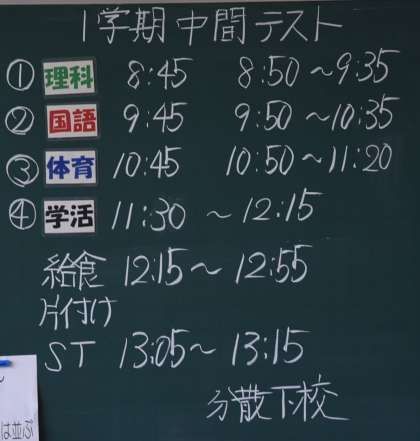 1学期中間テスト
① 理科 8:45 8:50~9:35
② 国語 9:45 9:50~10:35
③ 体育 10:45 10:50~11:20
④ 学活 11:30 ~ 12:15
給食 12:15~ 12:55
片付け
ST 13:05~ 13:15
分散下校